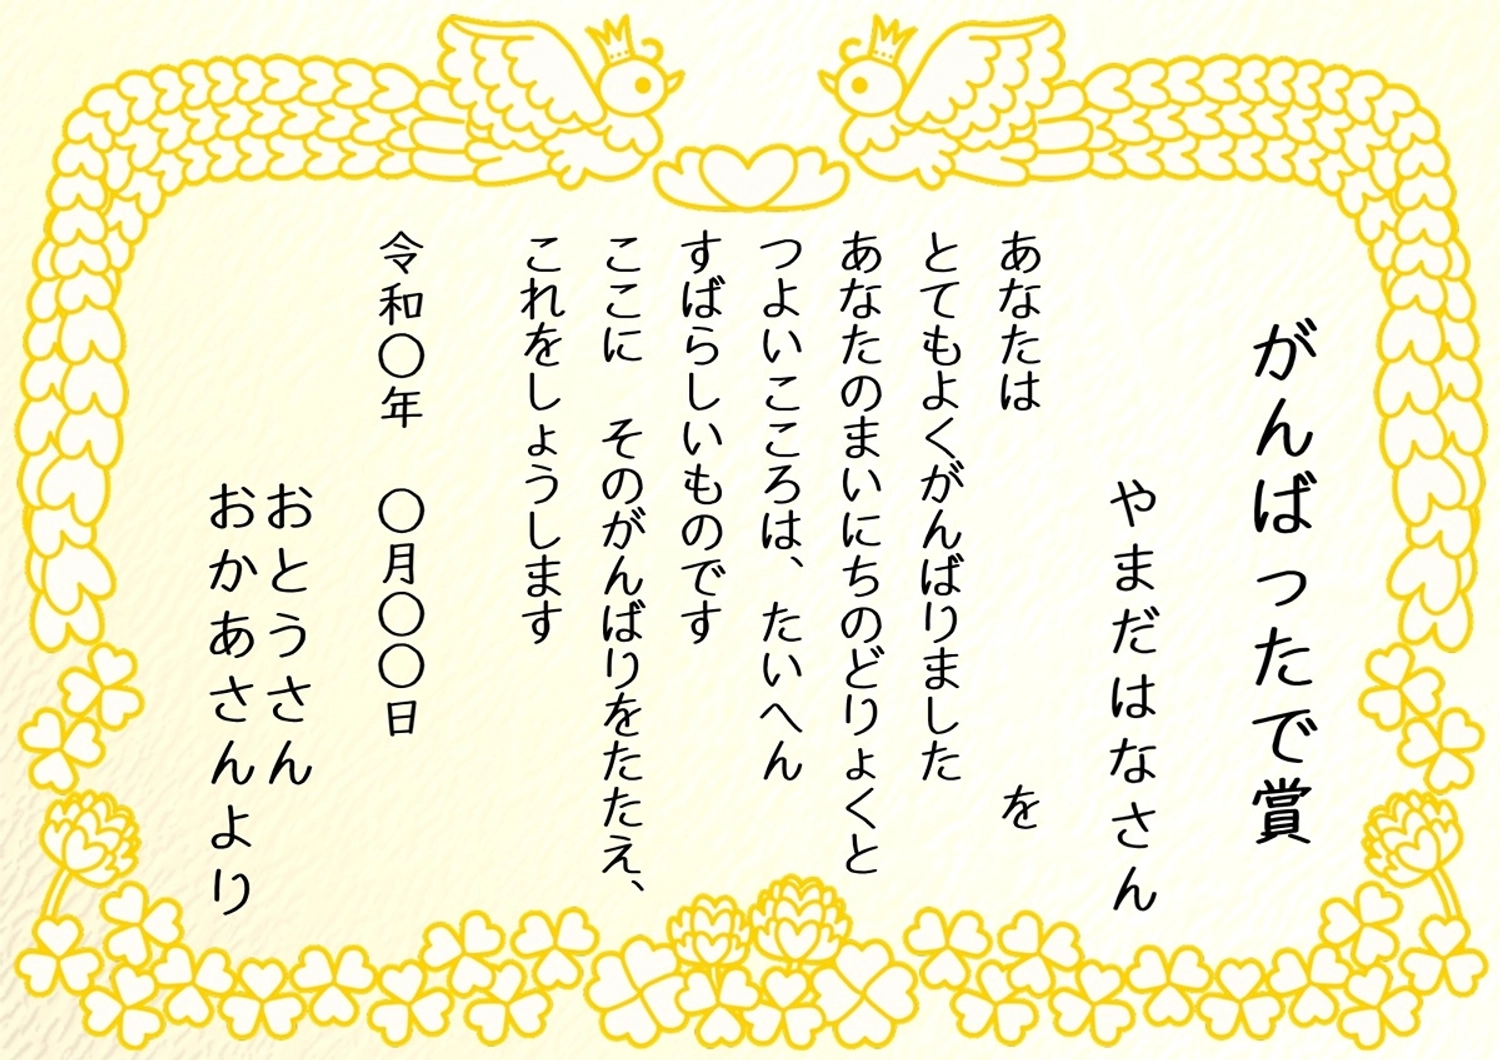 がんばったで賞
やまだはなさん
あなたは　　　　　　　　を
とてもよくがんばりました
あなたのまいにちのどりょくと
つよいこころは、たいへん
すばらしいものです
ここに　そのがんばりをたたえ、
これをしょうします
令和〇年　〇月〇〇日
おとうさん
おかあさんより